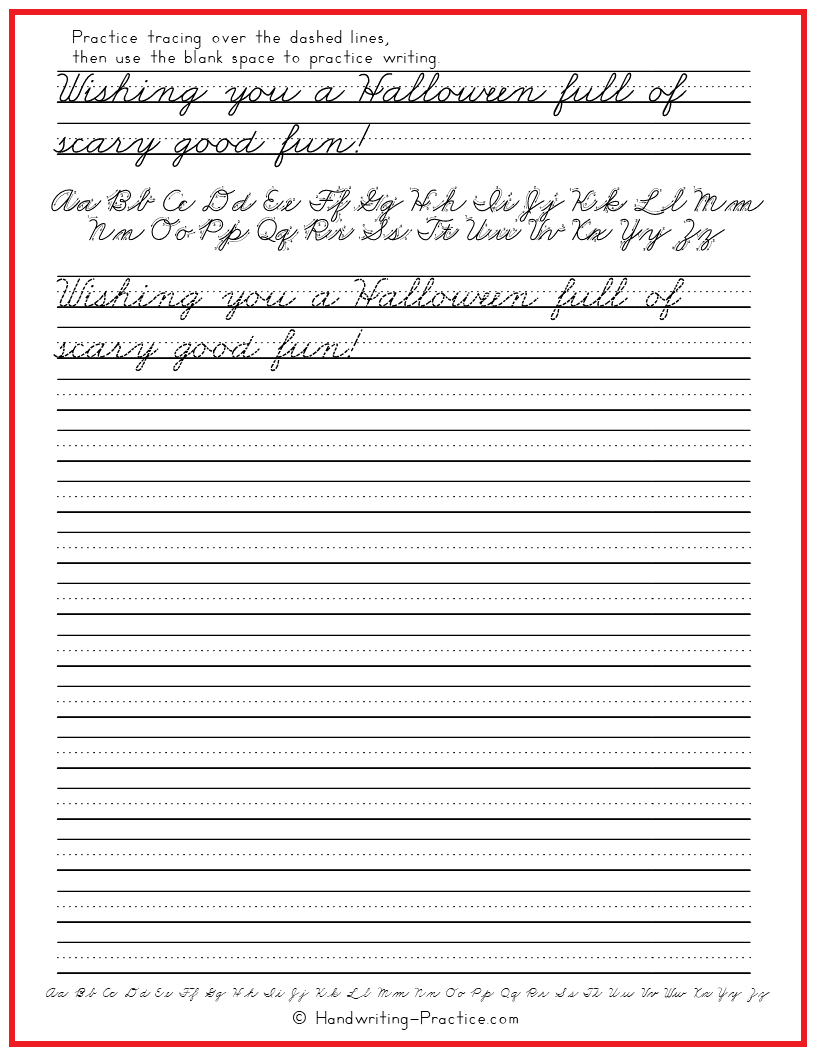 Practice tracing over the dashed lines,
then use the blank space to practice writing.
Wishing you a Halloween full of
scary good fun!
Aa Bb Cc Dd Ee Ff Gg Hh Ii Jj Kk Ll Mm
Nn Oo Pp Qq Rr Ss Tt Uu Vv Xx Yy Zz
Wishing you a Halloween full of
scary good fun!
Aa Bb Cc Dd Ee Ff Gg Hh Ii Jj Kk Ll Mm Nn Oo Pp Qq Rr Ss Tt Uu Vv Ww Xx Yy Zz
© Handwriting-Practice.com